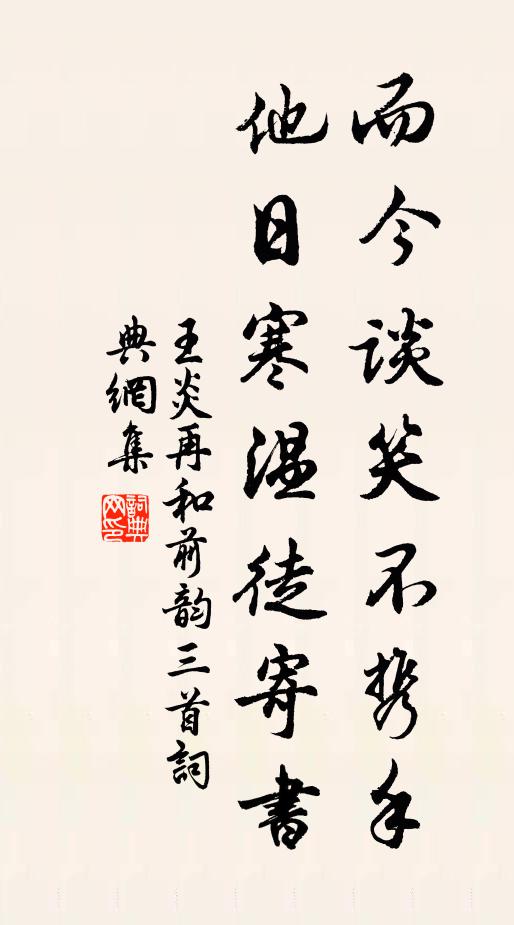 而今談笑不携手
他日寒温徒寄書
王炎再和前韵三首詞
典網集
詞典网印